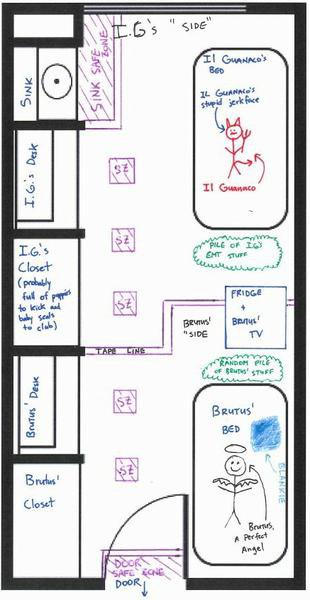 I.G's "SIDE"
SINK SAFE
ZONE
SINK
Il Guanaco's
BED
IL Guanaco's
stupid jerkface
Il Guanaco
I.G.'s Desk
SZ
SZ
SZ
PILE OF IG's
EMT STUFF
I.G.'s
Closet
(probably
full of puppies
to kick and
baby seals
to club)
FRIDGE
+
BRUTUS'
TV
BRUTUS'
"SIDE
TAPE LINE
RANDOM PILE
OF BRUTUS' STUFF
Brutus' Desk
SZ
SZ
BRUTUS'
BED
BLANKIE
Brutus,
A Perfect
Angel
Brutus'
Closet
DOOR
SAFE ZONE
DOOR